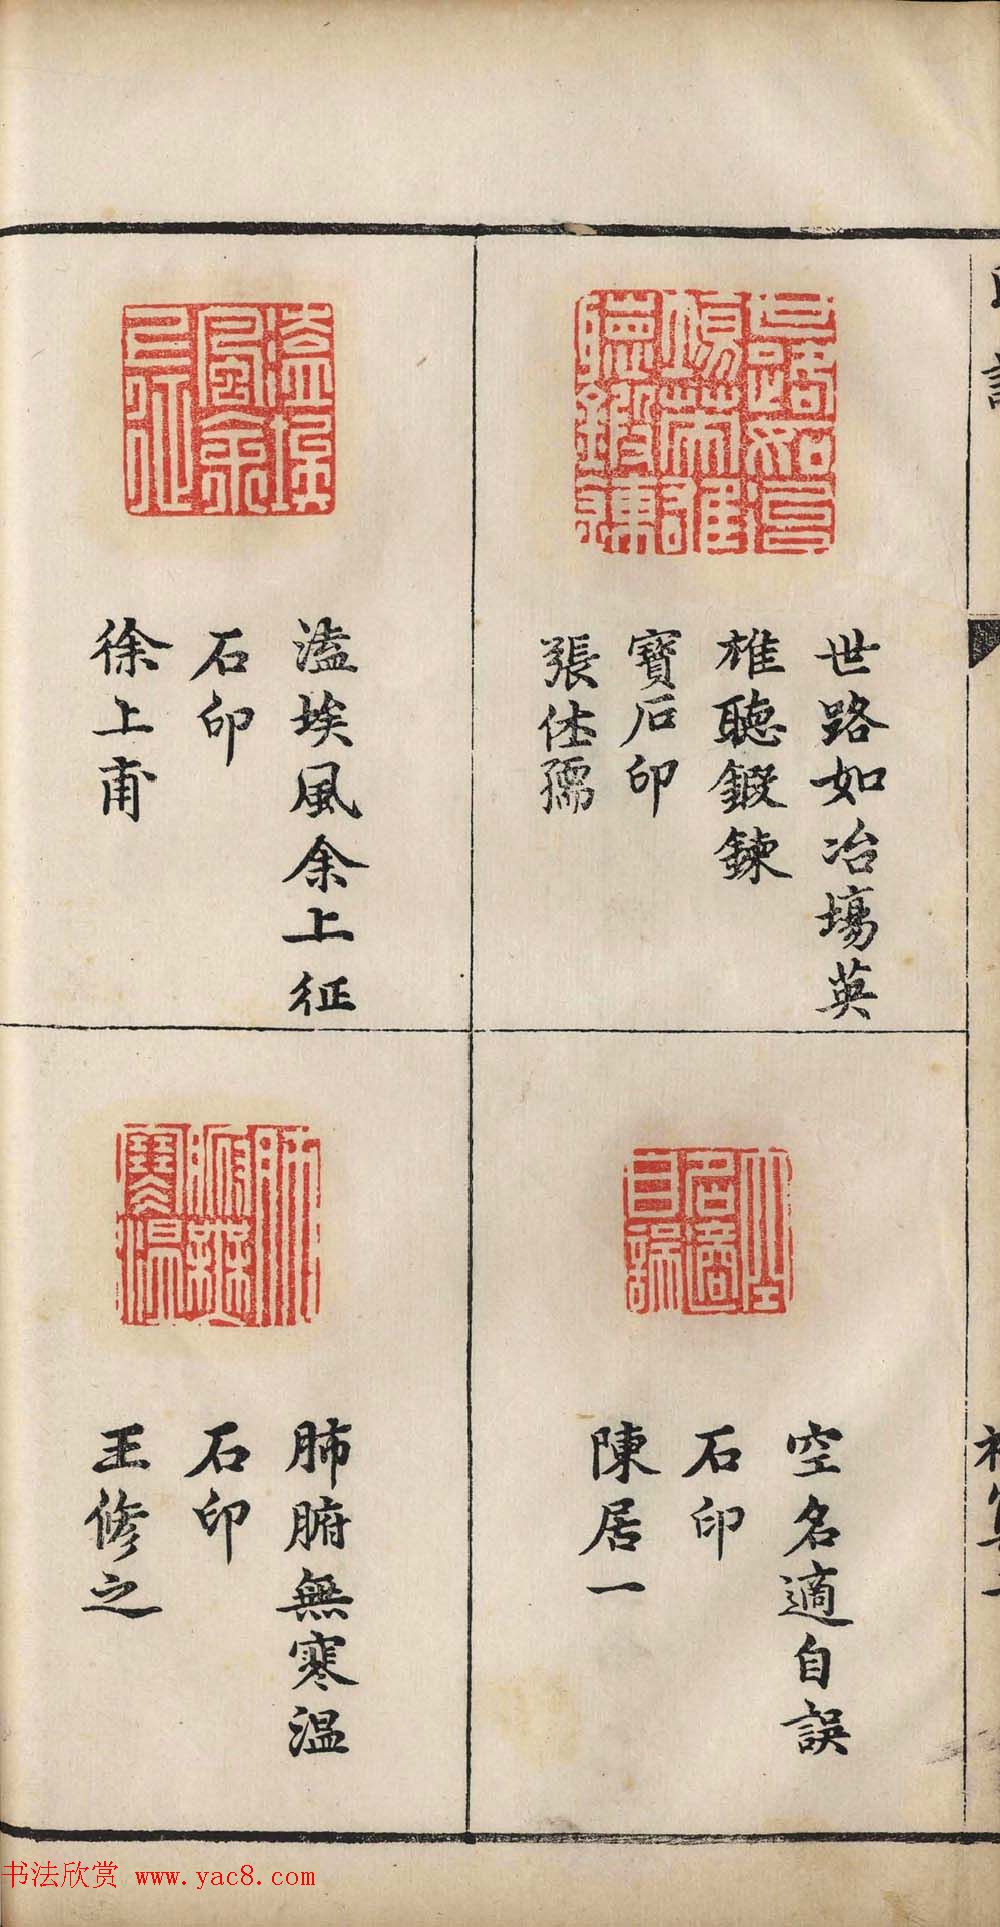 世路如冶場英
雄聽鍛鍊
寶石印
張仕孺
空名適自誤
石印
陳居一
溘埃風余上征
石印
徐上甫
肺腑無寒溫
石印
王修之
书法欣赏 www.yac8.com